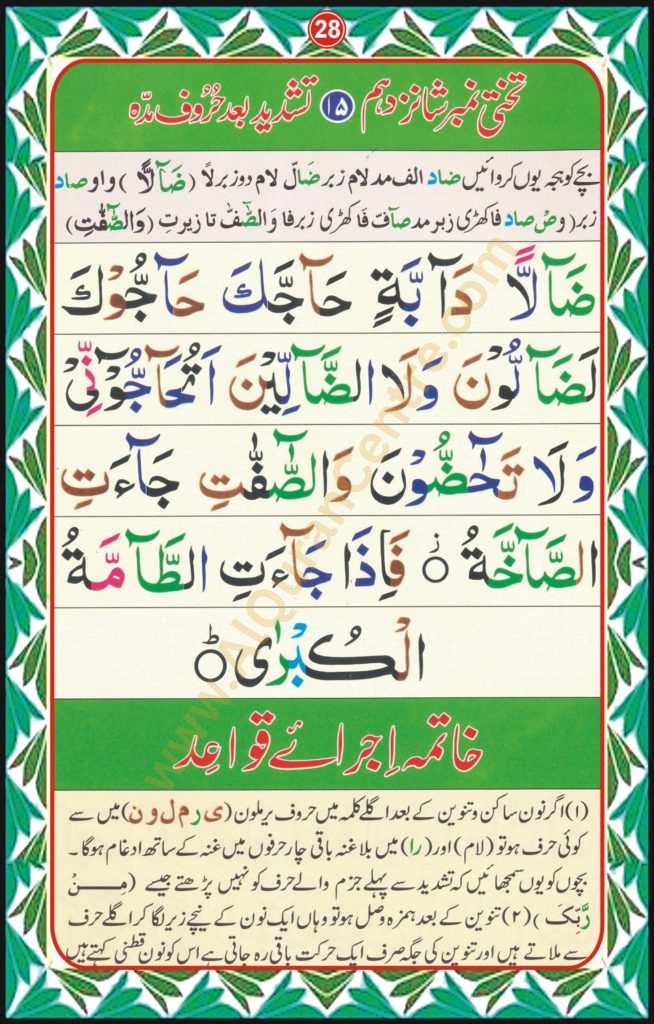 28
تختی نمبر شانزدہم ۱۵ تشدید بعد حُرُوف مدّہ
بچے کو ہجہ یوں کروائیں ضاد الف مد لام زبر ضَالّ لام دو زبر لاً (ضَآلًّا) واو صاد
زبر (وصْ صاد فا کھڑی زبر مد صآفّ فَا کھڑی زبر فا وَالصّٰٓفّٰ تا زیر تِ (وَالصّٰٓفّٰتِ)
ضَآلًّا دَآبَّةٍ حَآجَّكَ حَآجُّوْكَ
لَضَآلُّوْنَ وَلَا الضَّآلِّيْنَ اَتُحَآجُّوْٓنِّيْ
وَلَا تَحٰٓضُّوْنَ وَالصّٰٓفّٰتِ جَآءَتِ
الصَّآخَّةُ ز فَاِذَا جَآءَتِ الطَّآمَّةُ
الْكُبْرٰى ط
خاتمہ اِجرائے قواعِد
(۱) اگر نون ساکن و تنوین کے بعد اگلے کلمہ میں حروف یرملون (ی ر م ل و ن) میں سے
کوئی حرف ہو تو (لام) اور (را) میں بلاغنہ باقی چار حرفوں میں غنہ کے ساتھ ادغام ہوگا۔
بچوں کو یوں سمجھائیں کہ تشدید سے پہلے جزم والے حرف کو نہیں پڑھتے جیسے (مِنْ
رَّبِّكَ) (۲) تنوین کے بعد ہمزہ وصل ہو تو وہاں ایک نون کے نیچے زیر لگا کر اگلے حرف
سے ملاتے ہیں اور تنوین کی جگہ صرف ایک حرکت باقی رہ جاتی ہے اس کو نون قطنی کہتے ہیں
www.AlQuranCentre.com